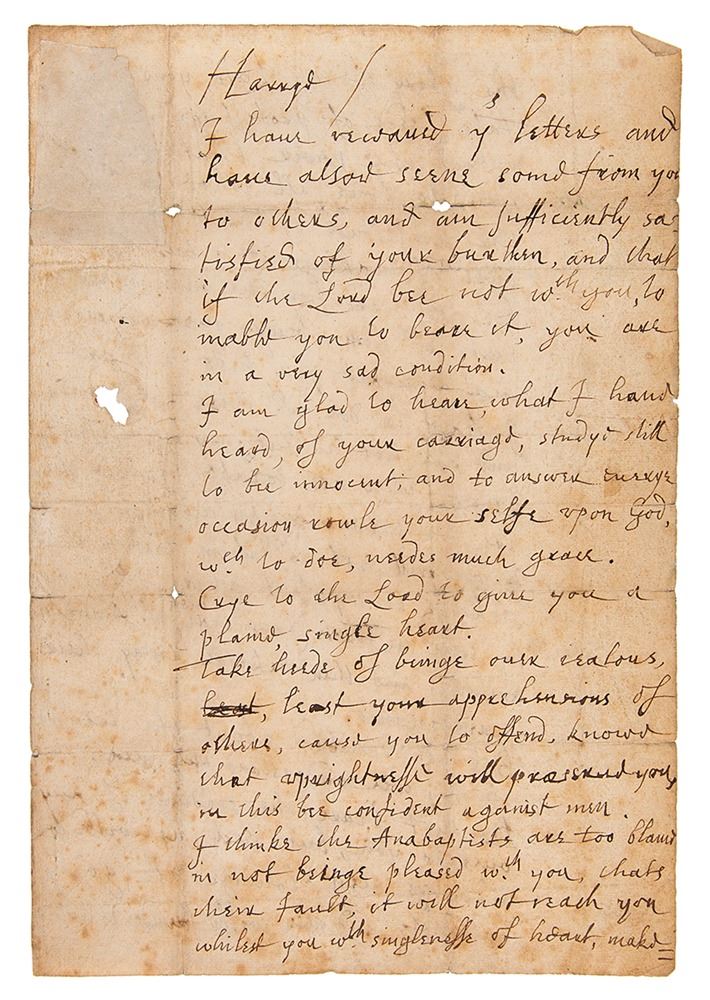 Harrye
I haue receaued yr letters and
haue alsoe seene some from you
to others, and am sufficiently sa-
tisfied of your burthen, and that
if the Lord bee not wth you, to
inable you to beare it, you are
in a very sad condition.
I am glad to heare, what I haue
heard, of your carriage, studye still
to bee innocent, and to answer euerye
occasion rowle your selfe vpon God,
wch to doe, needes much grace.
Crye to the Lord to giue you a
plaine, single heart.
Take heede of beinge ouer iealous,
least, least your apprehensions of
others, cause you to offend, knowe
that vprightnesse will preserue you,
in this bee confident against men.
I thinke the Anabaptists are too blame
in not beinge pleased wth you, thats
their fault, it will not reach you
whilest you wth singlenesse of heart, make